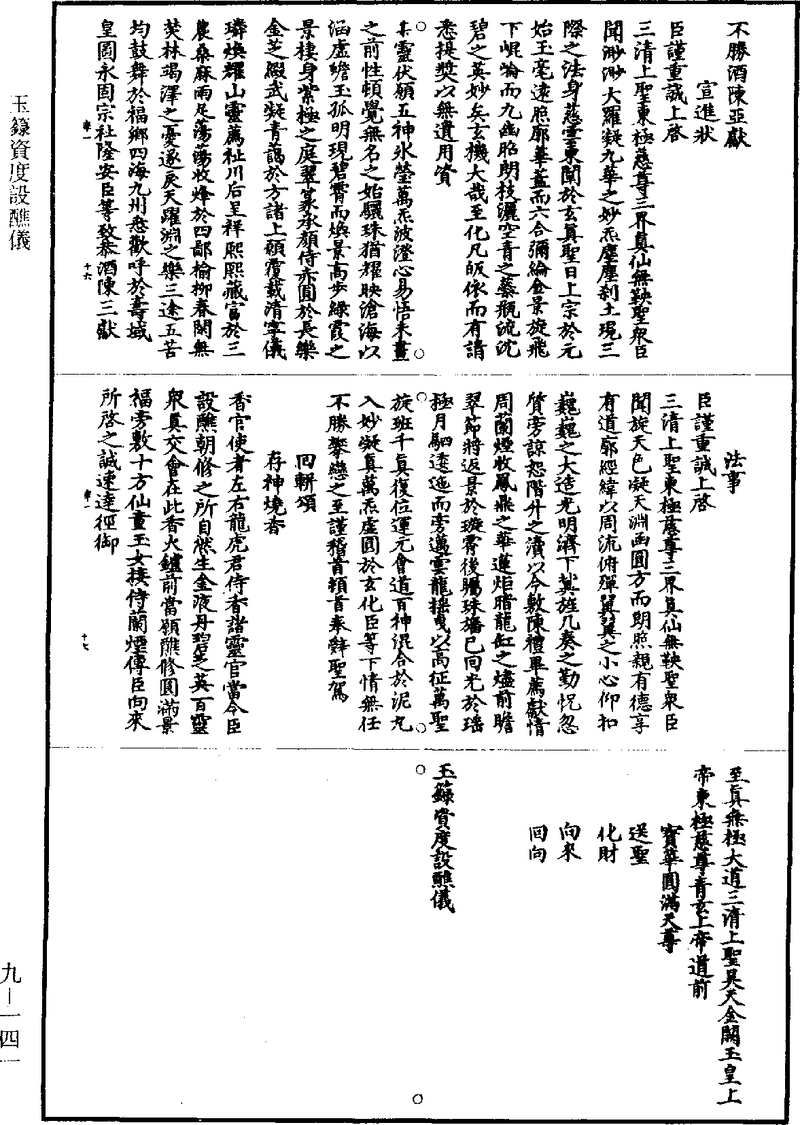 不勝酒陳亞獻
宣進狀
臣謹重誠上啓
三清上聖東極慈尊三界真仙無鞅聖衆臣
聞渺渺大羅凝九華之妙炁塵塵刹土現三
際之法身慈雲東闡於玄真聖日上宗於元
始玉毫遠照廓華蓋而六合彌綸金景旋飛
下崐崙而九幽昭朗枝灑空青之蘂瓶流沈
碧之英妙矣玄機大哉至化凡皈依而有請
悉提獎以無遺用質
真靈伏願五神氷瑩萬炁波澄心易悟未畫
之前性頓覺無名之始驪珠猶耀映滄海以
涵虛蟾玉孤明現碧霄而煥景高步綠霞之
景棲身紫極之庭翠篆承顏侍赤圓於長樂
金芝綴武凝青藹於方諸上願覆載清寧儀
璘煥耀山靈薦祉川后呈祥熙熙藏富於三
農桑麻雨足蕩蕩收烽於四鄙榆柳春閑無
焚林竭澤之憂遂戾天躍淵之樂三途五苦
均鼓舞於福鄉四海九州悉歡呼於壽域
皇圖永固宗社隆安臣等致恭酒陳三獻
十六
法事
臣謹重誠上啓
三清上聖東極慈尊三界真仙無鞅聖衆臣
聞旋天色凝天淵函圓方而朗照親有德享
有道廓經緯以周流俯殫翼翼之小心仰扣
巍巍之大造光明濟下冀旌几奏之勤怳忽
質旁諒恕階升之瀆以今敷陳禮畢薦獻情
周蘭煙收鳳鼎之華蓮炬暗龍缸之燼前瞻
翠節將返景於璇霄後矚珠旛已回光於瑶
極月駟逶迤而旁邁雲龍摽曳以高征萬聖
旋班千真復位運元會道百神混合於泥丸
入妙凝真萬炁虛圓於玄化臣等下情無任
不勝攀戀之至謹稽首頓首奉辭聖駕
回軿頌
存神燒香
香官使者左右龍虎君侍香諸靈官當令臣
設醮朝修之所自然生金液丹碧芝英百靈
衆真交會在此香火鑪前當願醮修圓滿景
福旁敷十方仙童玉女接侍蘭煙傳臣向來
所啓之誠速達徑御
十七
至真無極大道三清上聖昊天金闕玉皇上
帝東極慈尊青玄上帝道前
寶華圓滿天尊
送聖
化財
向來
回向
玉籙資度設醮儀
玉籙資度設醮儀
九—一四一